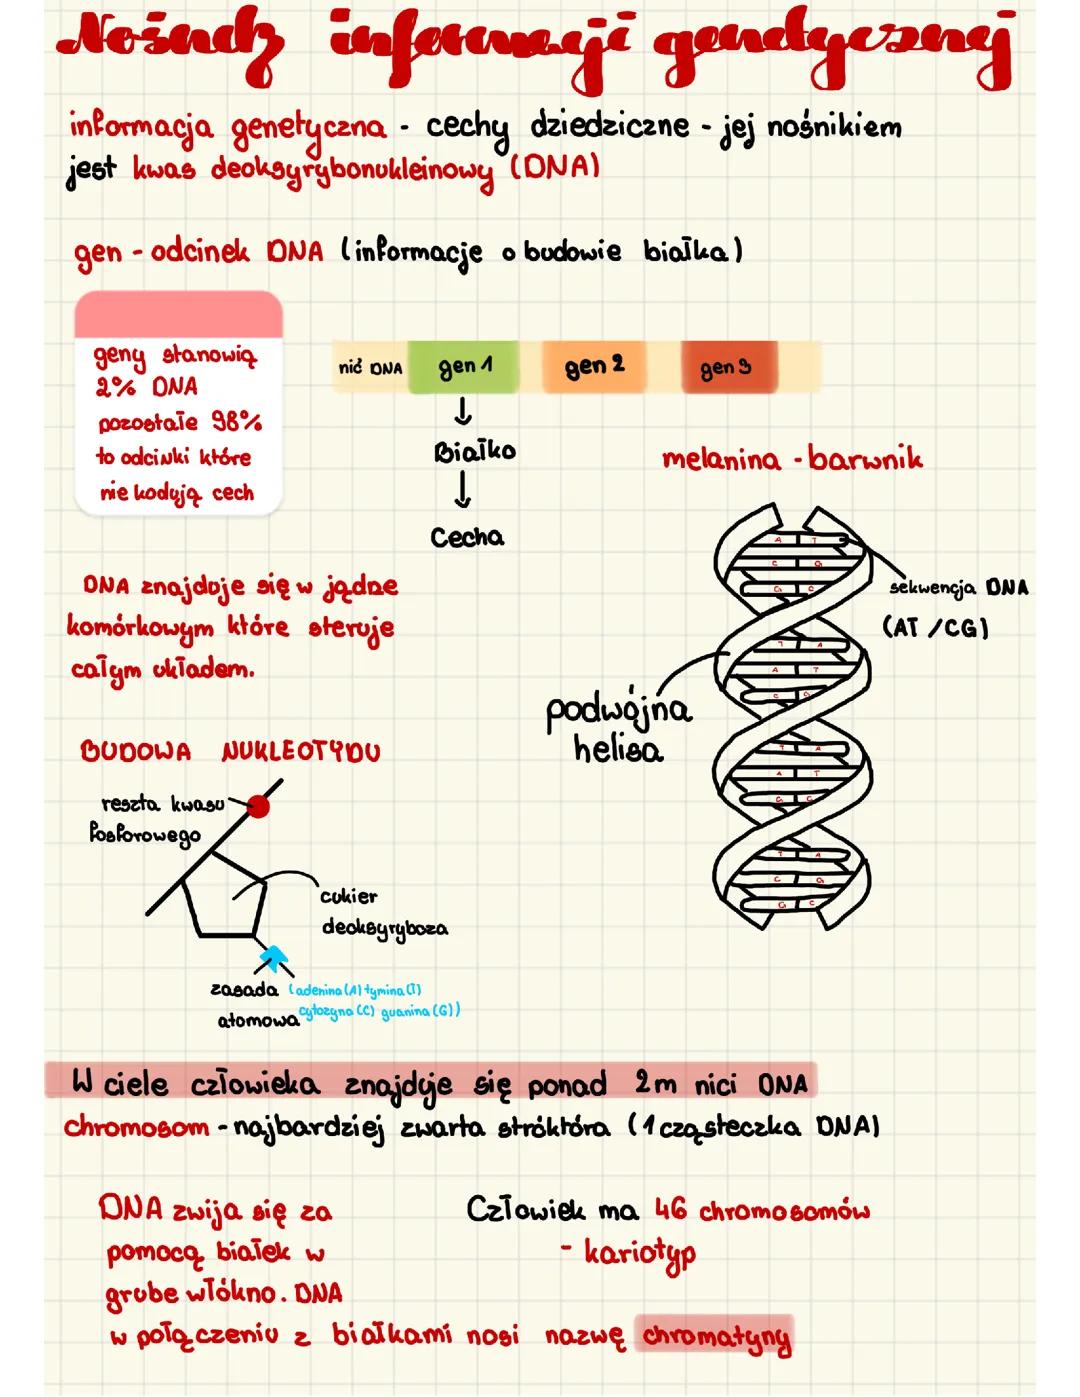 Nośnik informacji genetycznej
informacja genetyczna - cechy dziedziczne - jej nośnikiem
jest kwas deoksyrybonukleinowy (DNA)
gen - odcinek DNA (informacje o budowie białka)
geny stanowią
2% DNA
pozostałe 98%
to odcinki które
nie kodują cech
nić DNA gen 1 gen 2 gen 3
↓
Białko
↓
Cecha
melanina - barwnik
A T
C G
G C
T A
A T
C G
T A
A T
G C
T A
C G
G C
sekwencja DNA
(AT / CG)
podwójna
helisa
DNA znajduje się w jądrze
komórkowym które steruje
całym układem.
BUDOWA NUKLEOTYDU
reszta kwasu
fosforowego
cukier
deoksyryboza
zasada (adenina (A) tymina (T)
atomowa cytozyna (C) guanina (G))
W ciele człowieka znajduje się ponad 2m nici DNA
chromosom - najbardziej zwarta stróktóra (1 cząsteczka DNA)
DNA zwija się za
pomocą białek w
grube włókno. DNA
w połączeniu z białkami nosi nazwę chromatyny
Człowiek ma 46 chromosomów
- kariotyp